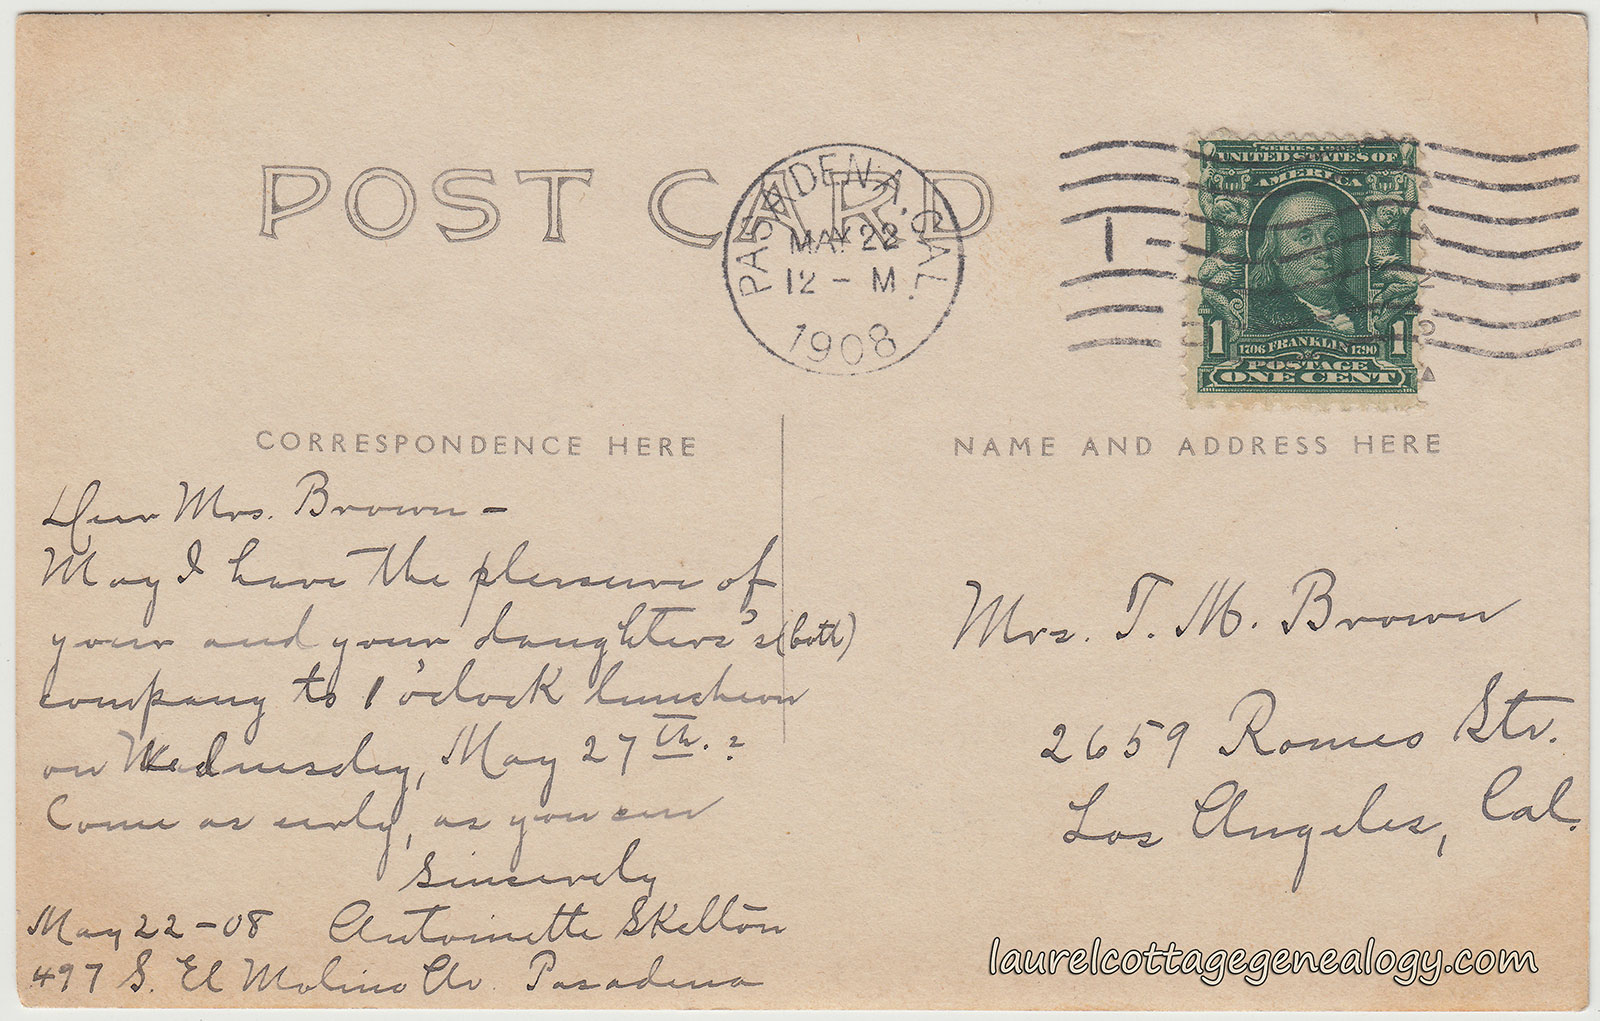 POST CARD
PASADENA, CAL.
MAY 22
12 - M
1908
1
SERIES 1902
UNITED STATES OF
AMERICA
1 1
1706 FRANKLIN 1790
POSTAGE
ONE CENT
CORRESPONDENCE HERE
Dear Mrs. Brown -
May I have the pleasure of
your and your daughters's (both)
company to 1 o'clock luncheon
on Wednesday, May 27th. ?
Come as early, as you can
Sincerely
May 22-08 Antoinette Skelton
497 S. El Molino Av. Pasadena
NAME AND ADDRESS HERE
Mrs. T. M. Brown
2659 Romeo Str.
Los Angeles, Cal.
laurelcottagegenealogy.com